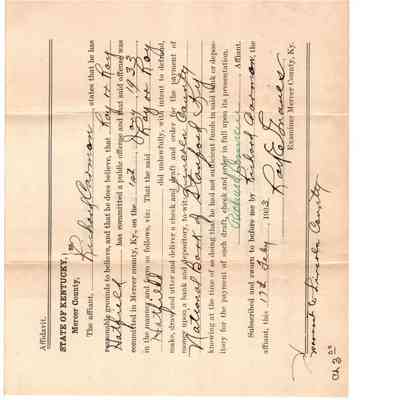 Affidavit.
STATE OF KENTUCKY, }
Mercer County,
The affiant, Richard Carman states that he has
reasonable grounds to believe, and that he does believe, that Ray or Roy
Hatfield has committed a public offense and that said offense was
committed in Mercer county, Ky., on the 1st Jany 1933
in the manner and form as follows, viz: That the said Ray or Roy
Hatfield
did unlawfully, with intent to defraud,
make, draw and utter and deliver a check and draft and order for the payment of
money upon a bank and depository, to-wit: Lincoln County
National Bank of Stanford Ky
knowing at the time of so doing that he had not sufficient funds in said bank or depos-
itory for the payment of such draft, check and order in full upon its presentation.
Affiant.
Subscribed and sworn to before me by Richard Carman the
affiant, this 17th Feby 1933.
Examiner Mercer County, Ky.
Warrant to Lincoln County